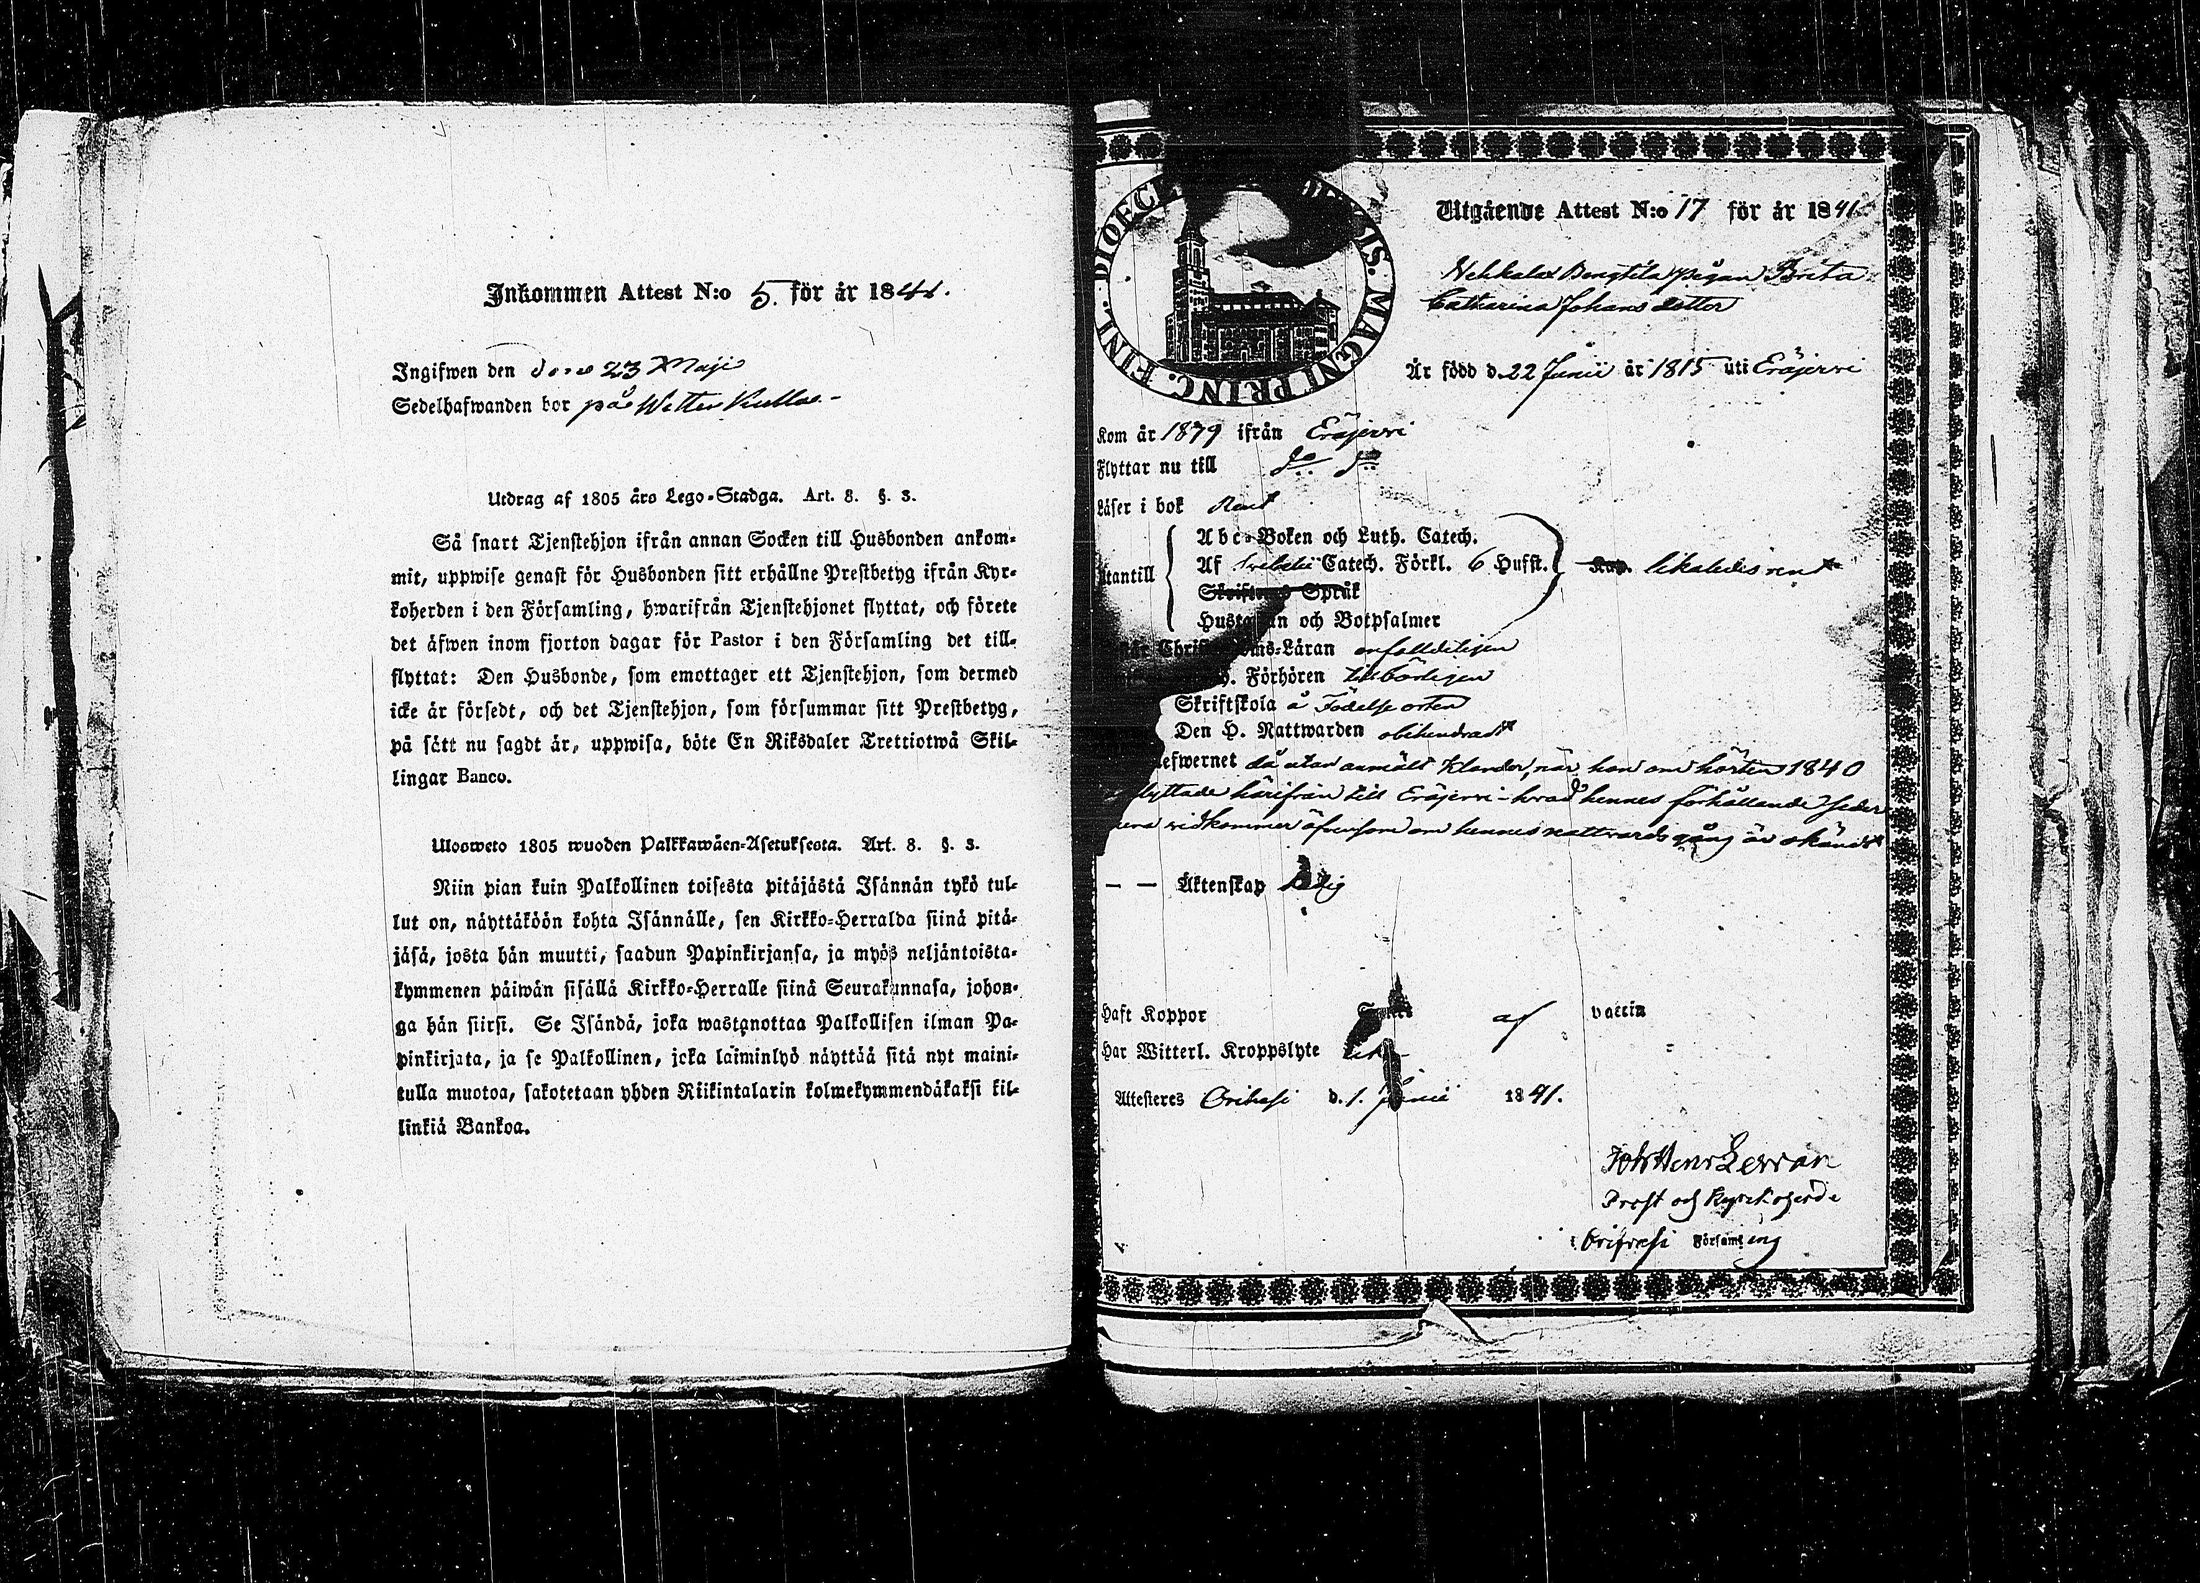 Inkommen Attest N:o 5. för år 1841.
Ingifwen den 23 Maji
Sedelhafwanden bor på
Utdrag af 1805 års Lego-Stadga. Art. 8. §. 3.
Så snart Tjenstehjon ifrån annan Socken till Husbonden ankom-
mit, uppwise genast för Husbonden sitt erhållne Prestbetyg ifrån Kyr-
koherden i den Församling, hwarifrån Tjenstehjonet flyttat, och förete
det äfwen inom fjorton dagar för Pastor i den Församling det till-
flyttat: Den Husbonde, som emottager ett Tjenstehjon, som dermed
icke är försedt, och det Tjenstehjon, som försummar sitt Prestbetyg,
på sätt nu sagdt är, uppwisa, böte En Riksdaler Trettiotwå Skil-
lingar Banco.
Uloosweto 1805 wuoden Palkkawäen-Asetuksesta. Art. 8. §. 3.
Niin pian kuin Palkollinen toisesta pitäjästä Isännän tykö tul-
lut on, näyttäköön kohta Isännälle, sen Kirkko-Herralda siinä pitä-
jäsä, josta hän muutti, saadun Papinkirjansa, ja myös neljäntoista-
kymmenen päiwän sisällä Kirkko-Herralle siinä Seurakunnasa, johon-
ga hän siirsi. Se Isändä, joka wastanottaa Palkollisen ilman Pa-
pinkirjata, ja se Palkollinen, joka laiminlyö näyttää sitä nyt maini-
tulla muotoa, sakotetaan yhden Riikintalarin kolmekymmendäkaksi kil-
linkiä Bankoa.
FINL. DIOEC IS. MAGNI PRINC.
Utgående Attest N:o 17 för år 1841
Bengtila pigan Brita
Catharina Johans dotter
Är född d. 22 Junii år 1815 uti Eräjervi
Kom år 1879 ifrån Eräjervi
Flyttar nu till do do
Läser i bok Rent
Utantill
Abc-Boken och Luth. Catech.
Af Svebelii Catech. Förkl. 6 Hufst.
Kap. likaledes rent
Skriftenes Språk
Hustaflan och Botpsalmer
Christendoms-Läran enfalldeligen
Förhören tillbörligen
Skriftskola å Födelse orten
Den H. Nattwarden obehindradt
efwernet då utan anmält klander, när hon om hösten 1840
flyttade härifrån till Eräjervi - hvad hennes förhållande seder
mera vidkommer äfvensom om hennes nattvards gång är okändt
— — Äktenskap Ledig
Haft Koppor af vaccin
Har Witterl. Kroppslyte
Attesteres Orihvesi d. 1. Junii 1841.
Joh Henr
Prost och Kyrckoherde
i Orihvesi Församling